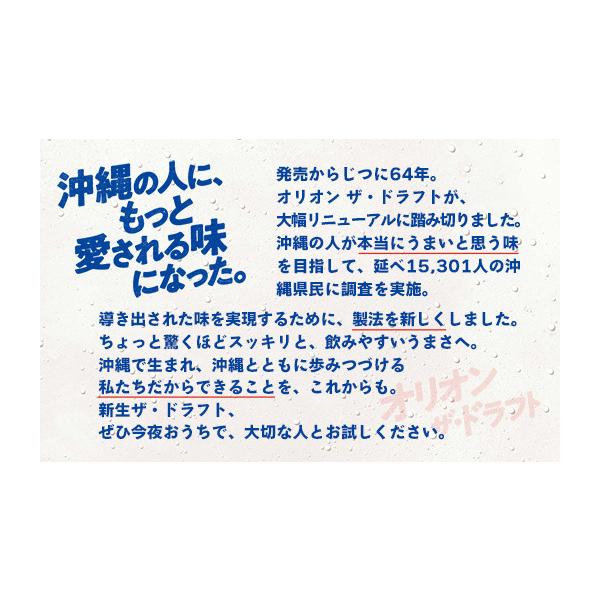 沖縄の人に、
もっと
愛される味
になった。
発売からじつに64年。
オリオン ザ・ドラフトが、
大幅リニューアルに踏み切りました。
沖縄の人が本当にうまいと思う味
を目指して、延べ15,301人の沖
縄県民に調査を実施。
導き出された味を実現するために、製法を新しくしました。
ちょっと驚くほどスッキリと、飲みやすいうまさへ。
沖縄で生まれ、沖縄とともに歩みつづける
私たちだからできることを、これからも。
新生ザ・ドラフト、
ぜひ今夜おうちで、大切な人とお試しください。
オリオン
ザ・ドラフト